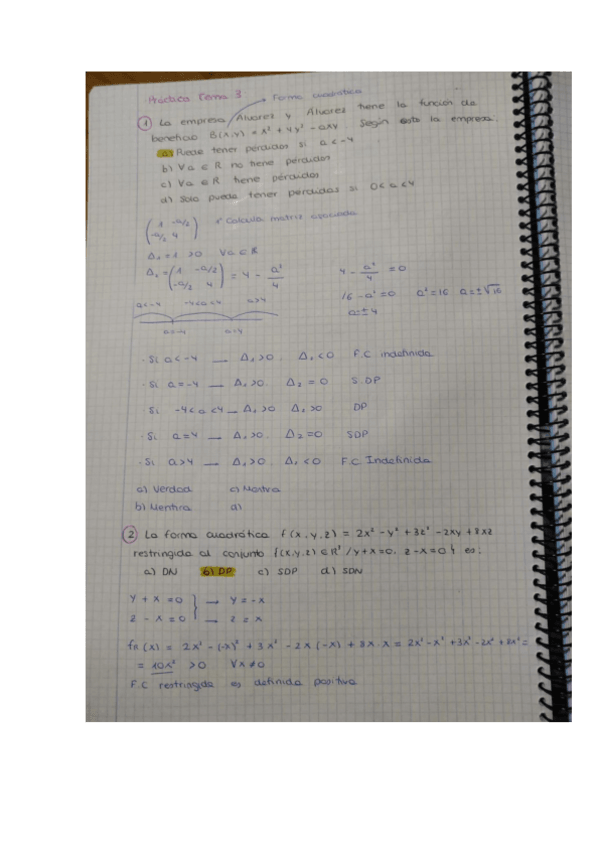 Práctica Tema 3 → Forma cuadrática
① La empresa Álvarez y Álvarez tiene la función de
beneficio B(x,y) = x² + 4y² - axy. Según esto la empresa:
a) Puede tener pérdidas si a < -4
b) ∀a ∈ R no tiene pérdidas
c) ∀a ∈ R tiene pérdidas
d) Solo puede tener pérdidas si 0<a<4
(1 -a/2
-a/2 4) Calcula matriz asociada
Δ₁ = 1 >0 ∀a ∈ R
Δ₂ = (1 -a/2
-a/2 4) = 4 - a²/4
4 - a²/4 = 0
16 - a² = 0 a² = 16 a = ±√16
a = ±4
a<-4 -4<a<4 a>4
a=-4 a=4
· Si a < -4 → Δ₁ >0, Δ₂ <0 F.C indefinida
· Si a = -4 → Δ₁ >0, Δ₂ = 0 S.DP
· Si -4<a<4 → Δ₁ >0 Δ₂ >0 DP
· Si a = 4 → Δ₁ >0, Δ₂ =0 SDP
· Si a>4 → Δ₁ >0, Δ₂ <0 F.C Indefinida
a) Verdad c) Mentira
b) Mentira d)
② La forma cuadrática f(x,y,z) = 2x² - y² + 3z² - 2xy + 8xz
restringida al conjunto {(x,y,z) ∈ R³ / y+x=0, z-x=0} es:
a) DN b) DP c) SDP d) SDN
y + x = 0 } → y = -x
z - x = 0 } → z = x
fR (x) = 2x² - (-x)² + 3x² - 2x(-x) + 8x·x = 2x² - x² + 3x² - 2x² + 8x² =
= 10x² >0 ∀x≠0
F.C restringida es definida positiva